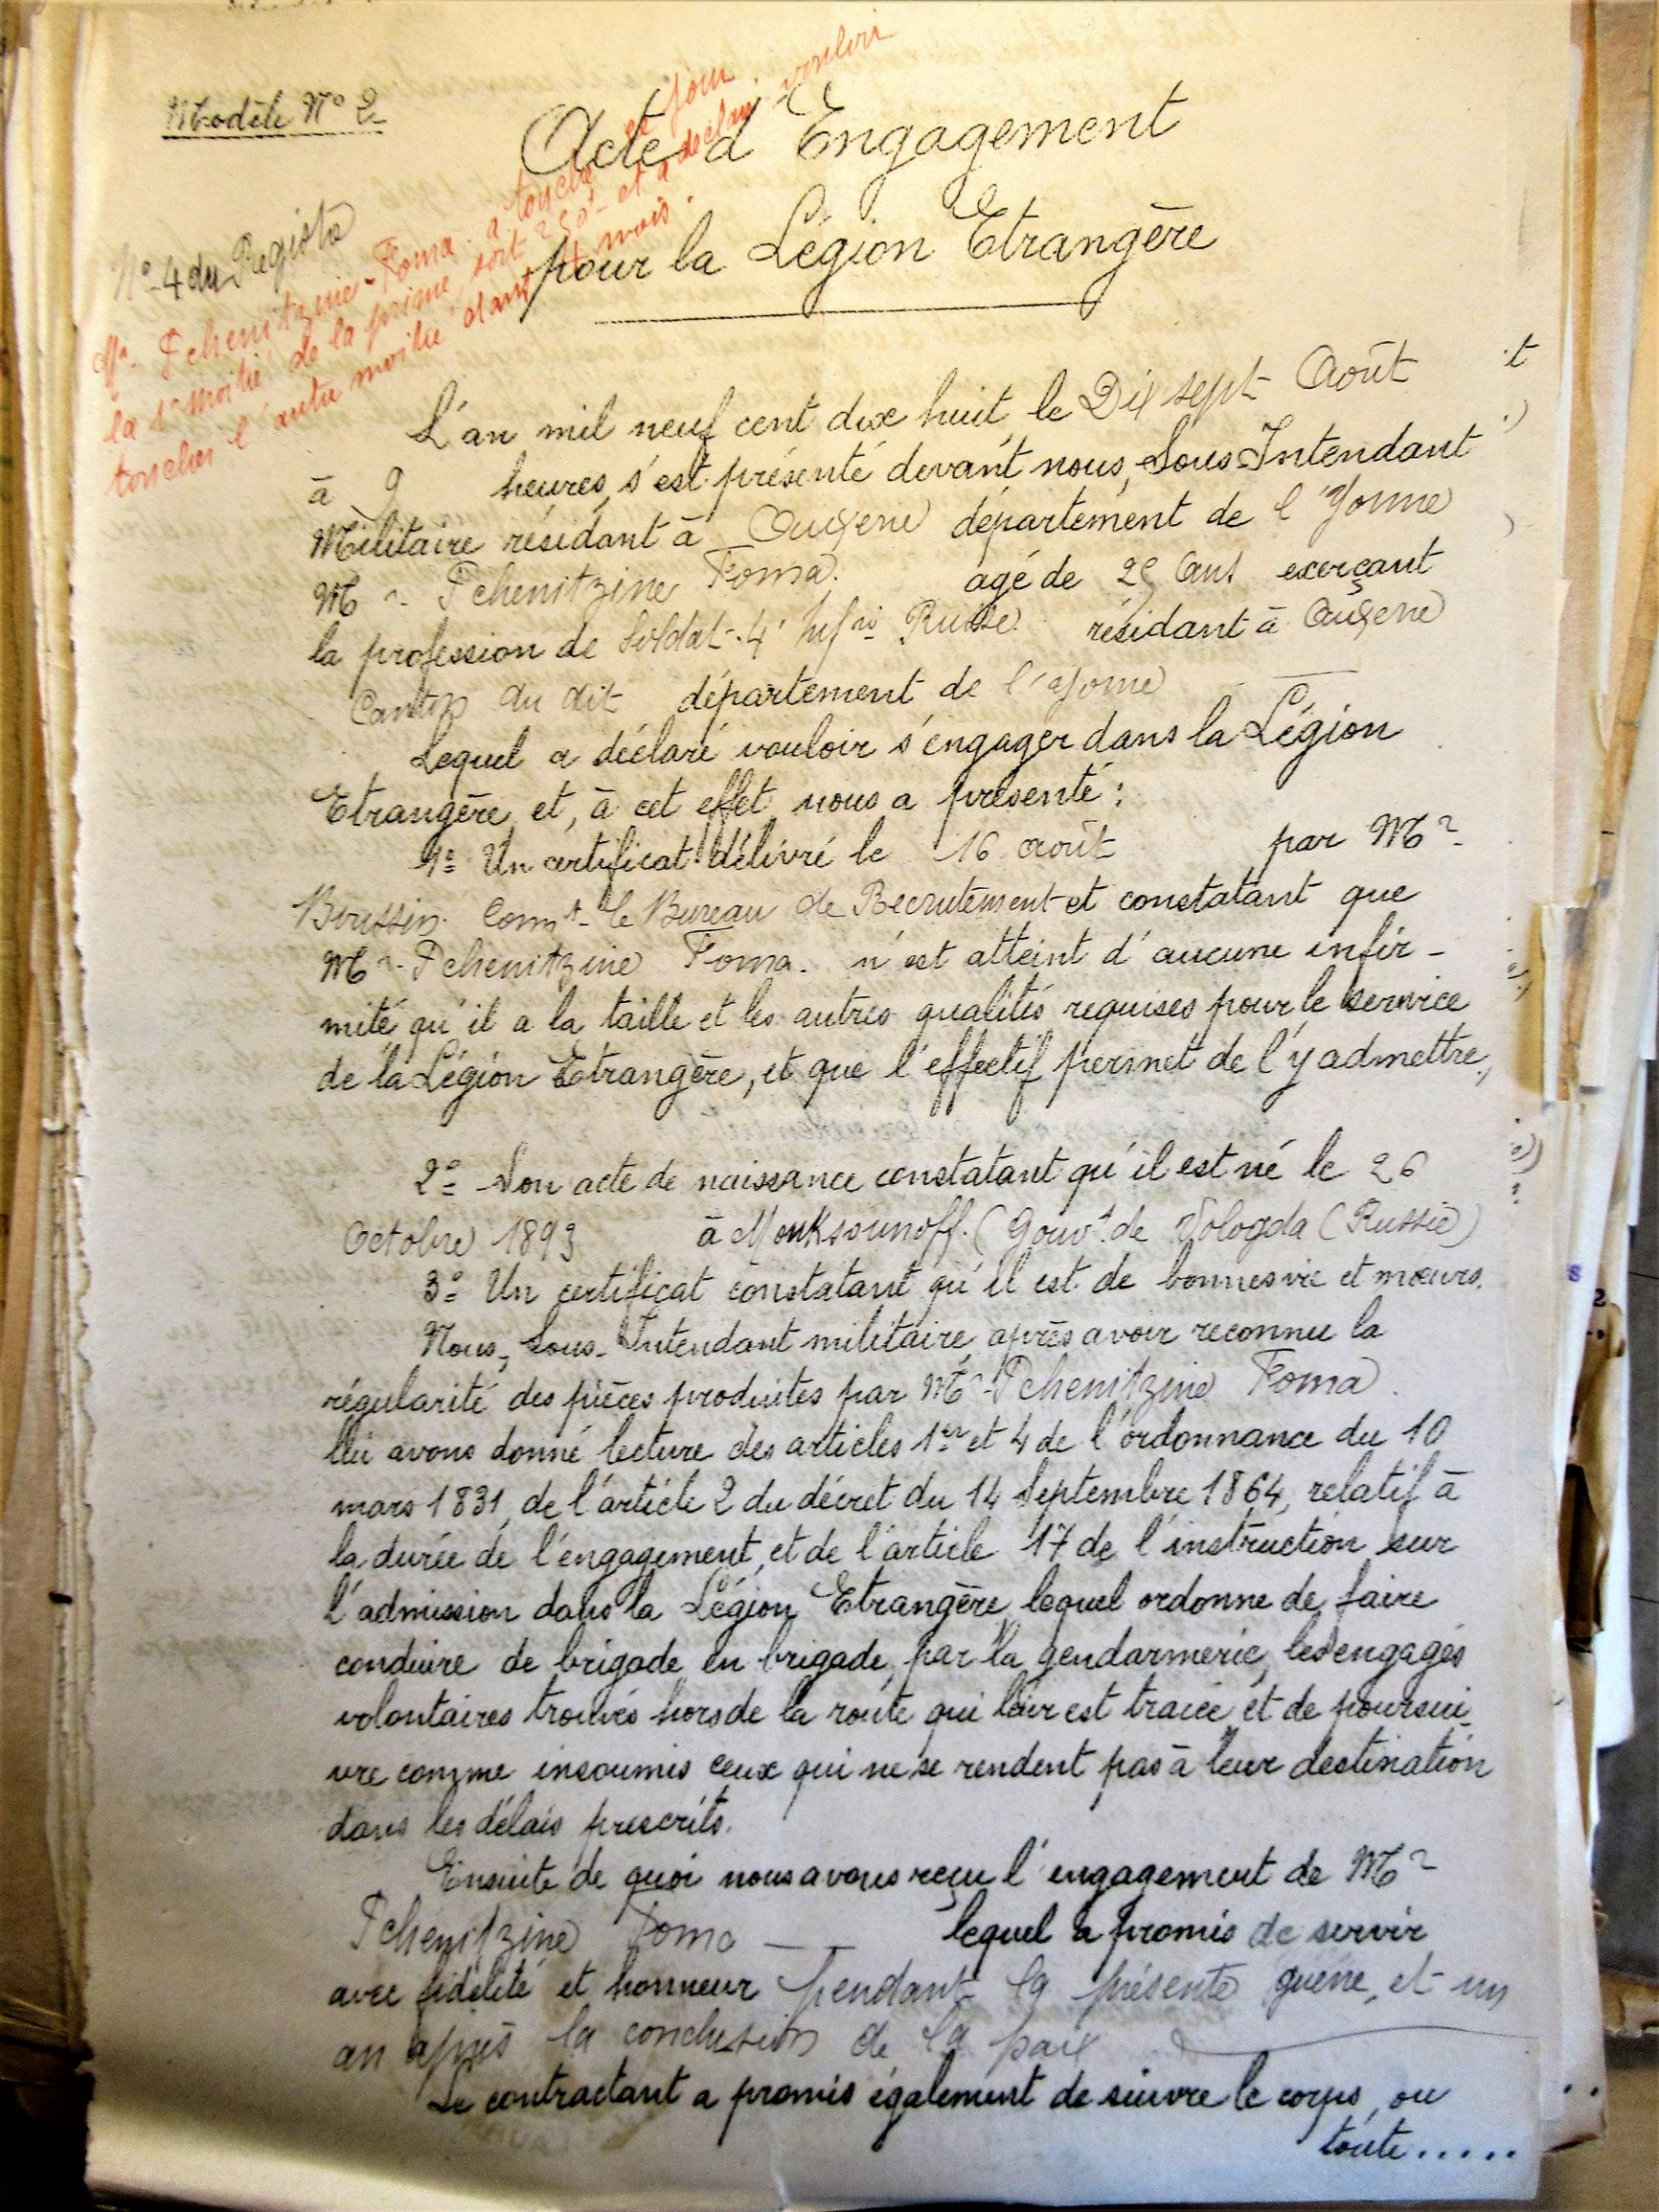 Modèle N° 2
Acte d'Engagement
pour la Légion Etrangère
N° 4 du Registre
Mr. Pchenitzine Foma a touché ce jour
la 1e moitié de la prime soit 250f et a déclaré vouloir
toucher l'autre moitié dans mois.
L'an mil neuf cent dix huit, le Dix sept Août
à 9 heures, s'est présenté devant nous, Sous-Intendant
Militaire résidant à Auxerre département de l'Yonne
Mr. Pchenitzine Foma. agé de 25 ans exerçant
la profession de Soldat - 4e Infrie Russe. résidant à Auxerre
Canton du dit département de l'Yonne
Lequel a déclaré vouloir s'engager dans la Légion
Etrangère, et, à cet effet, nous a présenté:
1° Un certificat délivré le 16 août par Mr.
Boussin. Comt le Bureau de Recrutement et constatant que
Mr. Pchenitzine Foma. n'est atteint d'aucune infir-
mité, qu'il a la taille et les autres qualités requises pour le service
de la Légion Etrangère, et que l'effectif permet de l'y admettre;
2° Son acte de naissance constatant qu'il est né le 26
Octobre 1893 à Mouksounoff. (Gouvt. de Vologda (Russie)
3° Un certificat constatant qu'il est de bonnes vie et mœurs.
Nous, Sous-Intendant militaire, après avoir reconnu la
régularité des pièces produites par Mr. Pchenitzine Foma.
lui avons donné lecture des articles 1er et 4 de l'ordonnance du 10
mars 1831, de l'article 2 du décret du 14 Septembre 1864, relatif à
la durée de l'engagement, et de l'article 17 de l'instruction sur
l'admission dans la Légion Etrangère, lequel ordonne de faire
conduire de brigade en brigade, par la gendarmerie, les engagés
volontaires trouvés hors de la route qui leur est tracée et de poursui-
vre comme insoumis ceux qui ne se rendent pas à leur destination
dans les délais prescrits.
Ensuite de quoi nous avons reçu l'engagement de Mr.
Pchenitzine Foma lequel a promis de servir
avec fidélité et honneur pendant la présente guerre, et un
an après la conclusion de la paix
Le contractant a promis également de suivre le corps, ou
toute.....